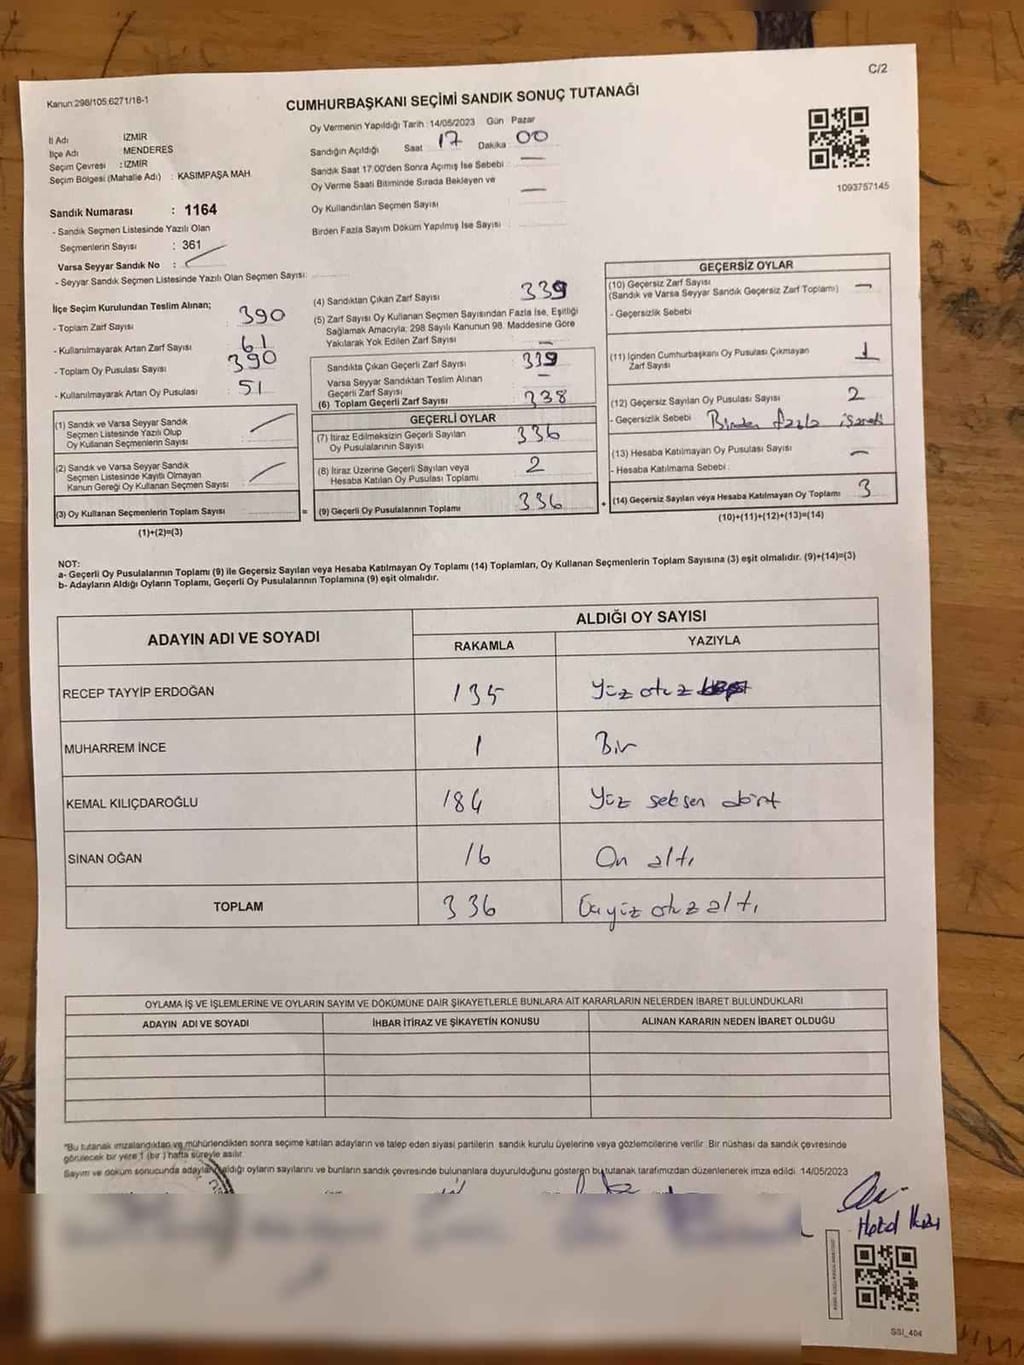 C/2
Kanun:298/105,6271/18-1
CUMHURBAŞKANI SEÇİMİ SANDIK SONUÇ TUTANAĞI
Oy Vermenin Yapıldığı Tarih : 14/05/2023 Gün Pazar
İl Adı İZMİR
İlçe Adı MENDERES
Seçim Çevresi : İZMİR
Seçim Bölgesi (Mahalle Adı) : KASIMPAŞA MAH.
Sandığın Açıldığı Saat 17 Dakika 00
Sandık Saat 17:00'den Sonra Açımış İse Sebebi : —
Oy Verme Saati Bitiminde Sırada Bekleyen ve
Oy Kullandırılan Seçmen Sayısı : —
Birden Fazla Sayım Döküm Yapılmış İse Sayısı :
1093757145
Sandık Numarası : 1164
- Sandık Seçmen Listesinde Yazılı Olan
Seçmenlerin Sayısı : 361
Varsa Seyyar Sandık No :
- Seyyar Sandık Seçmen Listesinde Yazılı Olan Seçmen Sayısı:
İlçe Seçim Kurulundan Teslim Alınan;
- Toplam Zarf Sayısı 390
- Kullanılmayarak Artan Zarf Sayısı 61
- Toplam Oy Pusulası Sayısı 390
- Kullanılmayarak Artan Oy Pusulası : 51
(1) Sandık ve Varsa Seyyar Sandık
Seçmen Listesinde Yazılı Olup
Oy Kullanan Seçmenlerin Sayısı :
(2) Sandık ve Varsa Seyyar Sandık
Seçmen Listesinde Kayıtlı Olmayan
Kanun Gereği Oy Kullanan Seçmen Sayısı :
(3) Oy Kullanan Seçmenlerin Toplam Sayısı : =
(1)+(2)=(3)
(4) Sandıktan Çıkan Zarf Sayısı 339
(5) Zarf Sayısı Oy Kullanan Seçmen Sayısından Fazla İse, Eşitliği
Sağlamak Amacıyla; 298 Sayılı Kanunun 98. Maddesine Göre
Yakılarak Yok Edilen Zarf Sayısı : —
Sandıkta Çıkan Geçerli Zarf Sayısı 339
Varsa Seyyar Sandıktan Teslim Alınan
Geçerli Zarf Sayısı —
(6) Toplam Geçerli Zarf Sayısı : 338
GEÇERLİ OYLAR
(7) İtiraz Edilmeksizin Geçerli Sayılan
Oy Pusulalarının Sayısı: 336
(8) İtiraz Üzerine Geçerli Sayılan veya
Hesaba Katılan Oy Pusulası Toplamı : 2
(9) Geçerli Oy Pusulalarının Toplamı 336 +
GEÇERSİZ OYLAR
(10) Geçersiz Zarf Sayısı
(Sandık ve Varsa Seyyar Sandık Geçersiz Zarf Toplamı) : —
- Geçersizlik Sebebi
(11) İçinden Cumhurbaşkanı Oy Pusulası Çıkmayan
Zarf Sayısı 1
(12) Geçersiz Sayılan Oy Pusulası Sayısı 2
- Geçersizlik Sebebi Birden fazla işareti
(13) Hesaba Katılmayan Oy Pusulası Sayısı : —
- Hesaba Katılmama Sebebi :
(14) Geçersiz Sayılan veya Hesaba Katılmayan Oy Toplamı 3
(10)+(11)+(12)+(13)=(14)
NOT:
a- Geçerli Oy Pusulalarının Toplamı (9) ile Geçersiz Sayılan veya Hesaba Katılmayan Oy Toplamı (14) Toplamları, Oy Kullanan Seçmenlerin Toplam Sayısına (3) eşit olmalıdır. (9)+(14)=(3)
b- Adayların Aldığı Oyların Toplamı, Geçerli Oy Pusulalarının Toplamına (9) eşit olmalıdır.
ADAYIN ADI VE SOYADI ALDIĞI OY SAYISI
RAKAMLA YAZIYLA
RECEP TAYYİP ERDOĞAN 135 Yüz otuz
MUHARREM İNCE 1 Bir
KEMAL KILIÇDAROĞLU 184 Yüz seksen dört
SİNAN OĞAN 16 On altı
TOPLAM 336 Üçyüz otuz altı
OYLAMA İŞ VE İŞLEMLERİNE VE OYLARIN SAYIM VE DÖKÜMÜNE DAİR ŞİKAYETLERLE BUNLARA AİT KARARLARIN NELERDEN İBARET BULUNDUKLARI
ADAYIN ADI VE SOYADI İHBAR İTİRAZ VE ŞİKAYETİN KONUSU ALINAN KARARIN NEDEN İBARET OLDUĞU
"Bu tutanak imzalandıktan ve mühürlendikten sonra seçime katılan adayların ve talep eden siyasi partilerin sandık kurulu üyelerine veya gözlemcilerine verilir. Bir nüshası da sandık çevresinde
görülecek bir yere 1 (bir ) hafta süreyle asılır.
Sayım ve döküm sonucunda adayların aldığı oyların sayılarını ve bunların sandık çevresinde bulunanlara duyurulduğunu gösteren bu tutanak tarafımızdan düzenlenerek imza edildi. 14/05/2023
SSI_404